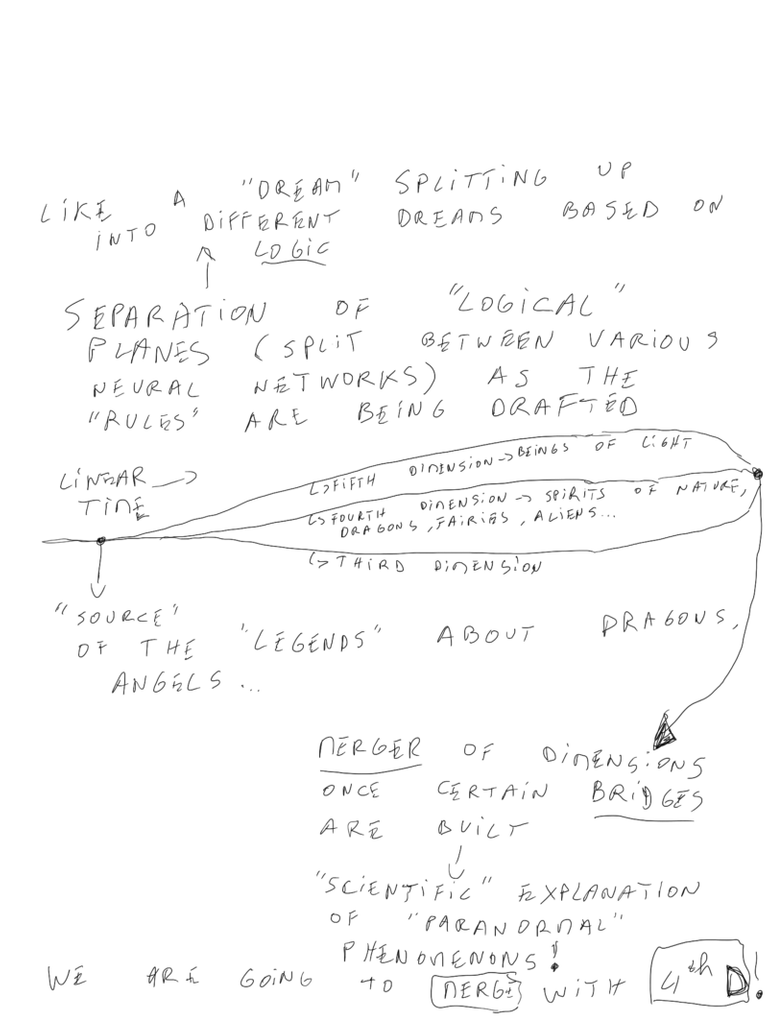 LIKE A "DREAM" SPLITTING UP
INTO DIFFERENT DREAMS BASED ON
LOGIC
SEPARATION OF "LOGICAL"
PLANES (SPLIT BETWEEN VARIOUS
NEURAL NETWORKS) AS THE
"RULES" ARE BEING DRAFTED
LINEAR
TIME
FIFTH DIMENSION → BEINGS OF LIGHT
FOURTH DIMENSION → SPIRITS OF NATURE,
DRAGONS, FAIRIES, ALIENS...
THIRD DIMENSION
"SOURCE"
OF THE "LEGENDS" ABOUT DRAGONS,
ANGELS...
MERGER OF DIMENSIONS
ONCE CERTAIN BRIDGES
ARE BUILT
"SCIENTIFIC" EXPLANATION
OF "PARANORMAL"
PHENOMENONS!
WE ARE GOING TO MERGE WITH 4th D!